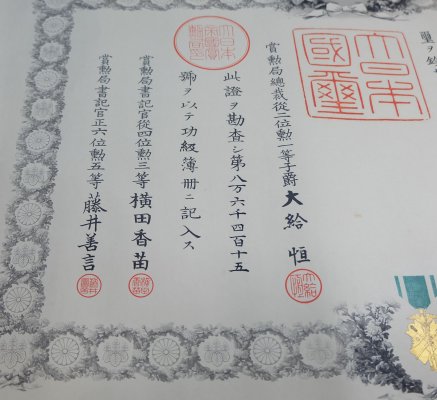 璽ヲ鈐
大日本國璽
賞勲局總裁從二位勲一等子爵大給恒
此證ヲ勘査シ第八万六千四百十五
號ヲ以テ功級簿册ニ記入ス
賞勲局書記官從四位勲三等橫田香苗
賞勲局書記官正六位勲五等藤井善言